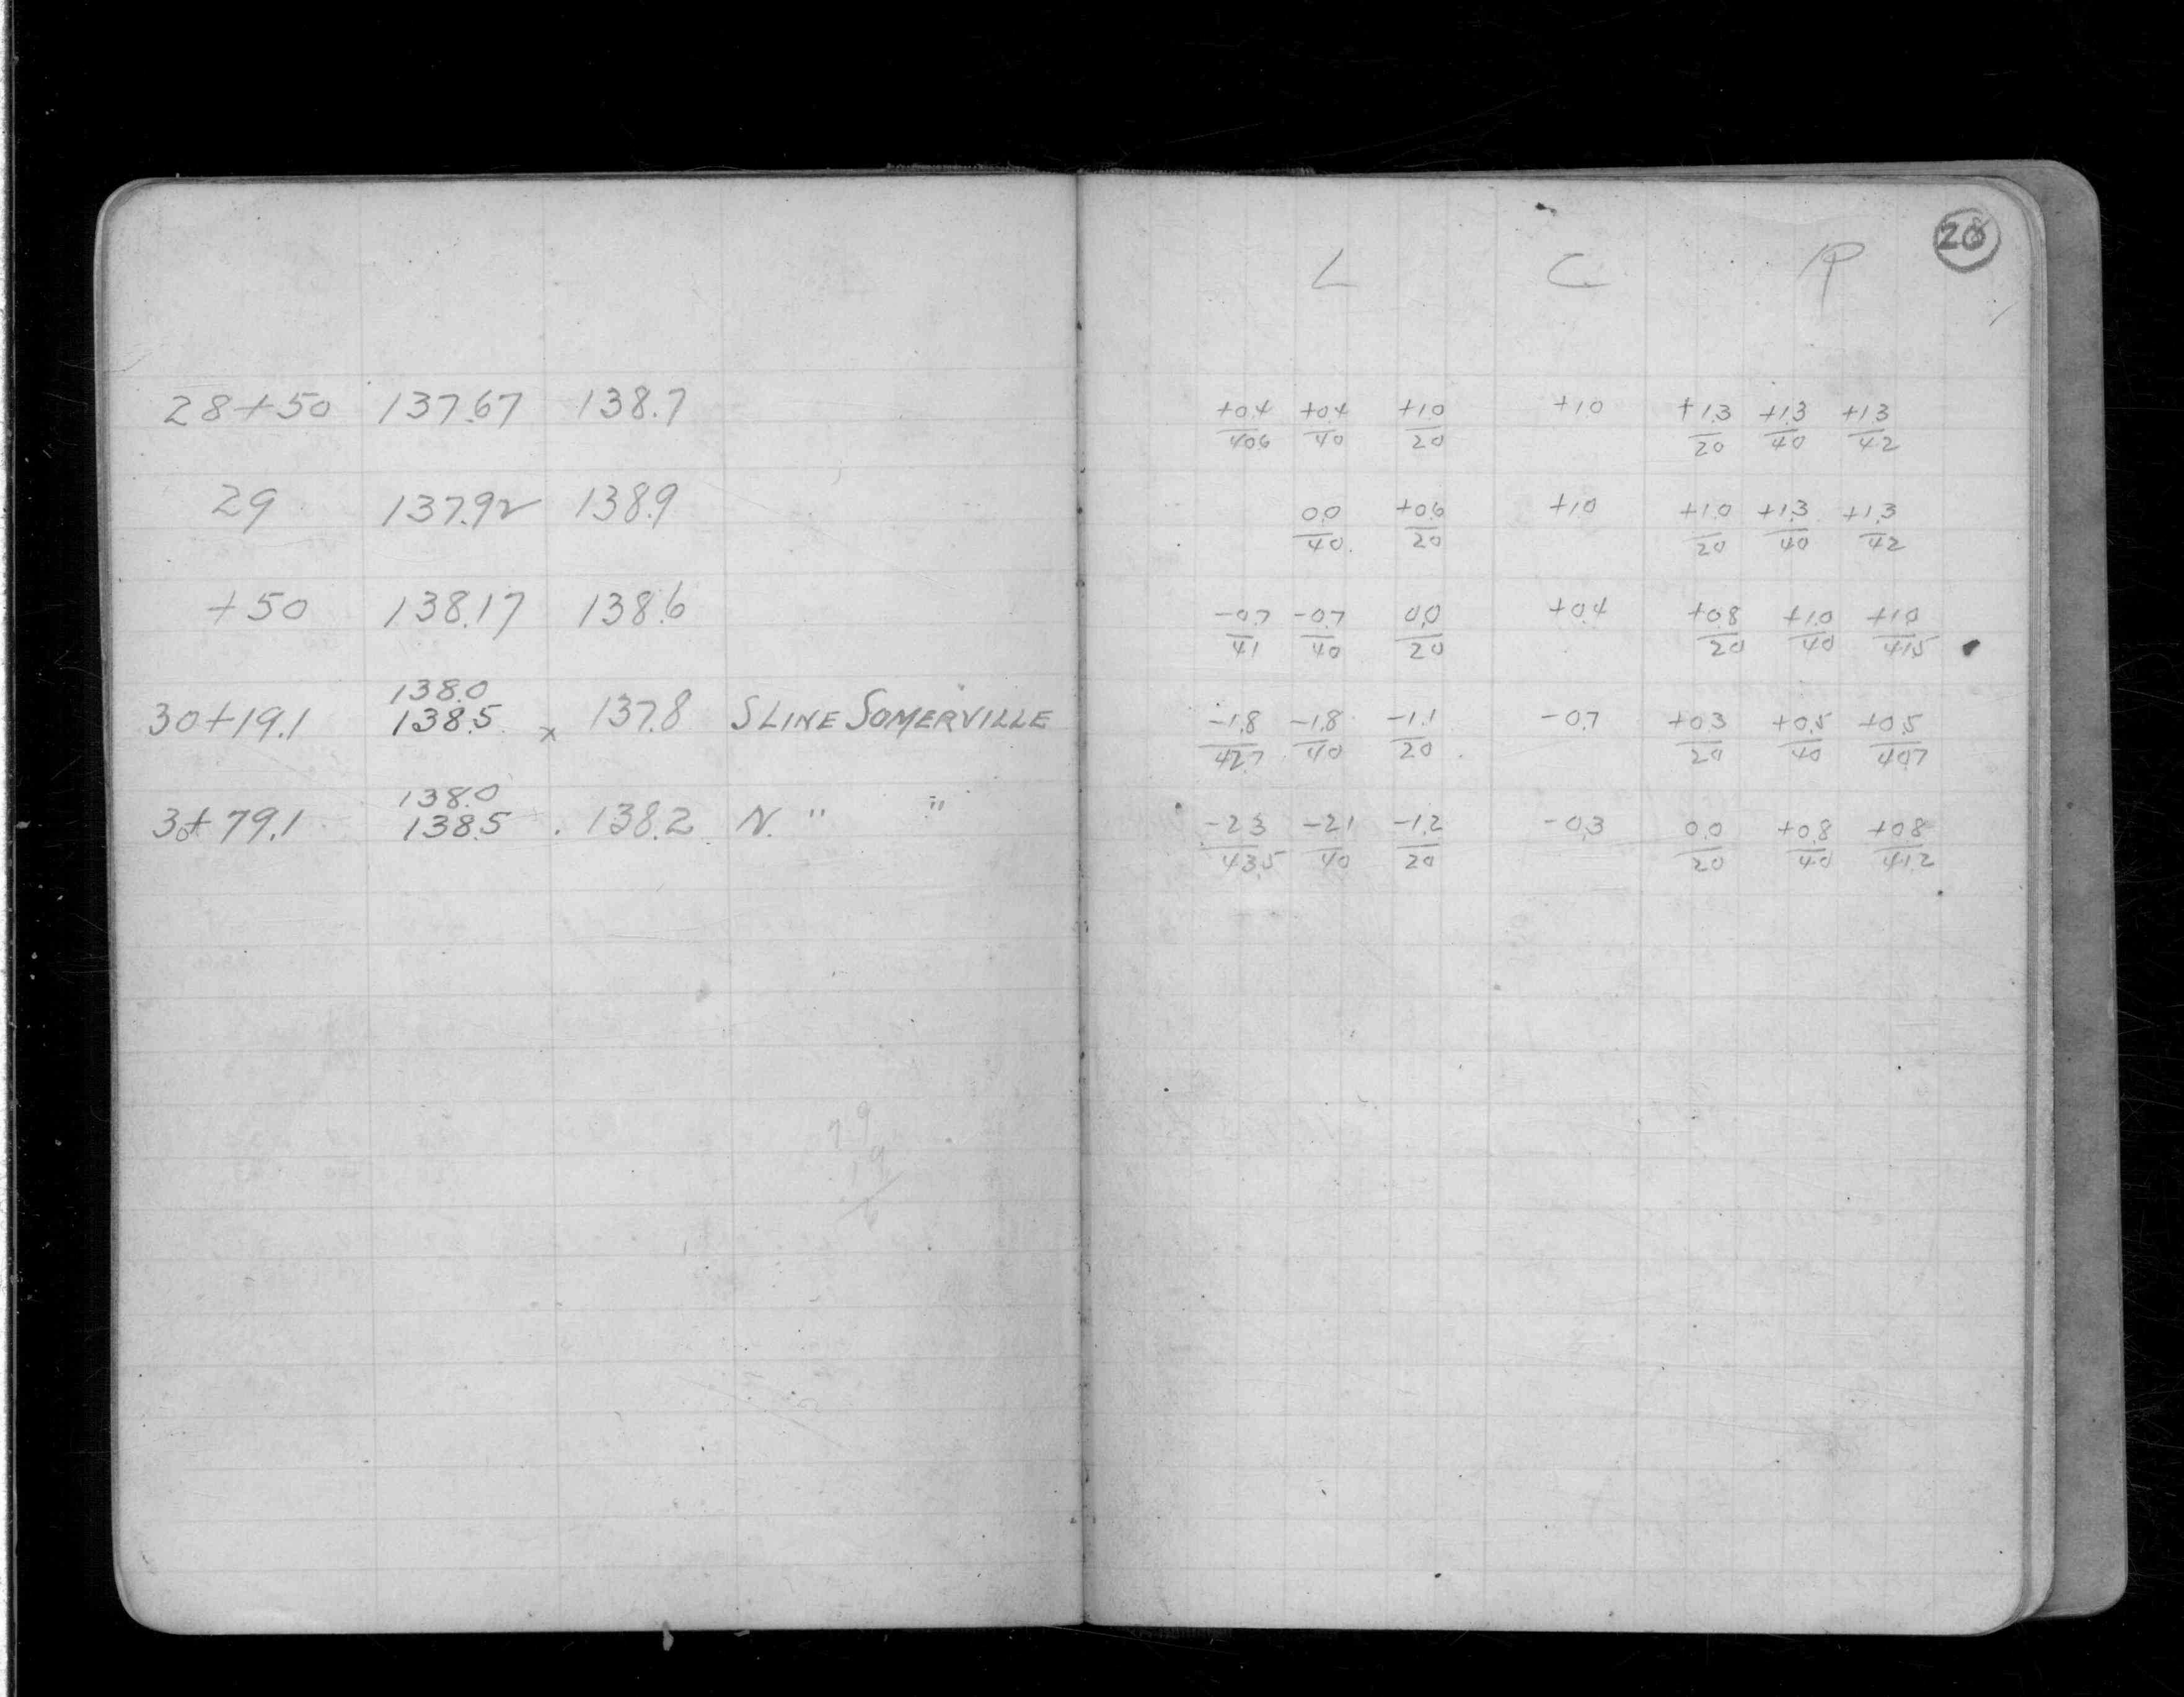 28+50 137.67 138.7
29 137.92 138.9
+50 138.17 138.6
138.0
30+19.1 138.5 x 137.8 S LINE SOMERVILLE
138.0
30+79.1 138.5 . 138.2 N. " "
79
19
28
L C R
+0.4 +0.4 +1.0 +1.0 +1.3 +1.3 +1.3
40.6 40 20 20 40 42
0.0 +0.6 +1.0 +1.0 +1.3 +1.3
40 20 20 40 42
-0.7 -0.7 0.0 +0.4 +0.8 +1.0 +1.0
41 40 20 20 40 41.5
-1.8 -1.8 -1.1 -0.7 +0.3 +0.5 +0.5
42.7 40 20 20 40 40.7
-2.3 -2.1 -1.2 -0.3 0.0 +0.8 +0.8
43.5 40 20 20 40 41.2